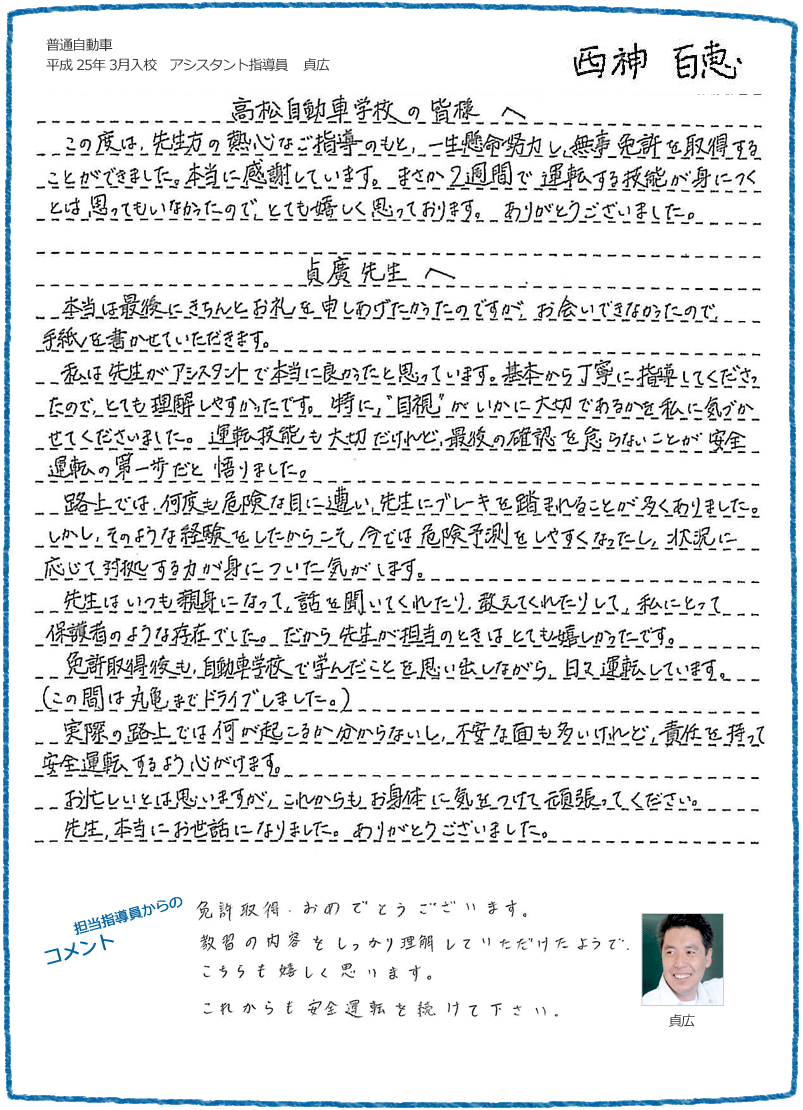 普通自動車
平成 25年 3月入校　アシスタント指導員　貞広
西神 百恵
高松自動車学校の皆様 へ
この度は、先生方の熱心なご指導のもと、一生懸命努力し、無事免許を取得する
ことができました。本当に感謝しています。まさか2週間で運転する技能が身につく
とは、思ってもいなかったので、とても嬉しく思っております。 ありがとうございました。
貞廣先生 へ
本当は最後にきちんとお礼を申しあげたかったのですが、お会いできなかったので、
手紙を書かせていただきます。
私は先生がアシスタントで本当に良かったと思っています。基本から丁寧に指導してくださっ
たので、とても理解しやすかったです。 特に、"目視"がいかに大切であるかを私に気づか
せてくださいました。 運転技能も大切だけれど、最後の確認を怠らないことが安全
運転の第一歩だと悟りました。
路上では、何度も危険な目に遭い、先生にブレーキを踏まれることが多くありました。
しかし、そのような経験をしたからこそ、今では危険予測をしやすくなったし、状況に
応じて対処する力が身についた気がします。
先生はいつも親身になって、話を聞いてくれたり、教えてくれたりして、私にとって
保護者のような存在でした。だから先生が担当のときはとても嬉しかったです。
免許取得後も、自動車学校で学んだことを思い出しながら、日々運転しています。
(この間は丸亀までドライブしました。)
実際の路上では何が起こるか分からないし、不安な面も多いけれど、責任を持って
安全運転するよう心がけます。
お忙しいとは思いますが、これからもお身体に気をつけて頑張ってください。
先生、本当にお世話になりました。ありがとうございました。
担当指導員からの
コメント
免許取得、おめでとうございます。
教習の内容をしっかり理解していただけたようで、
こちらも嬉しく思います。
これからも安全運転を続けて下さい。
貞広